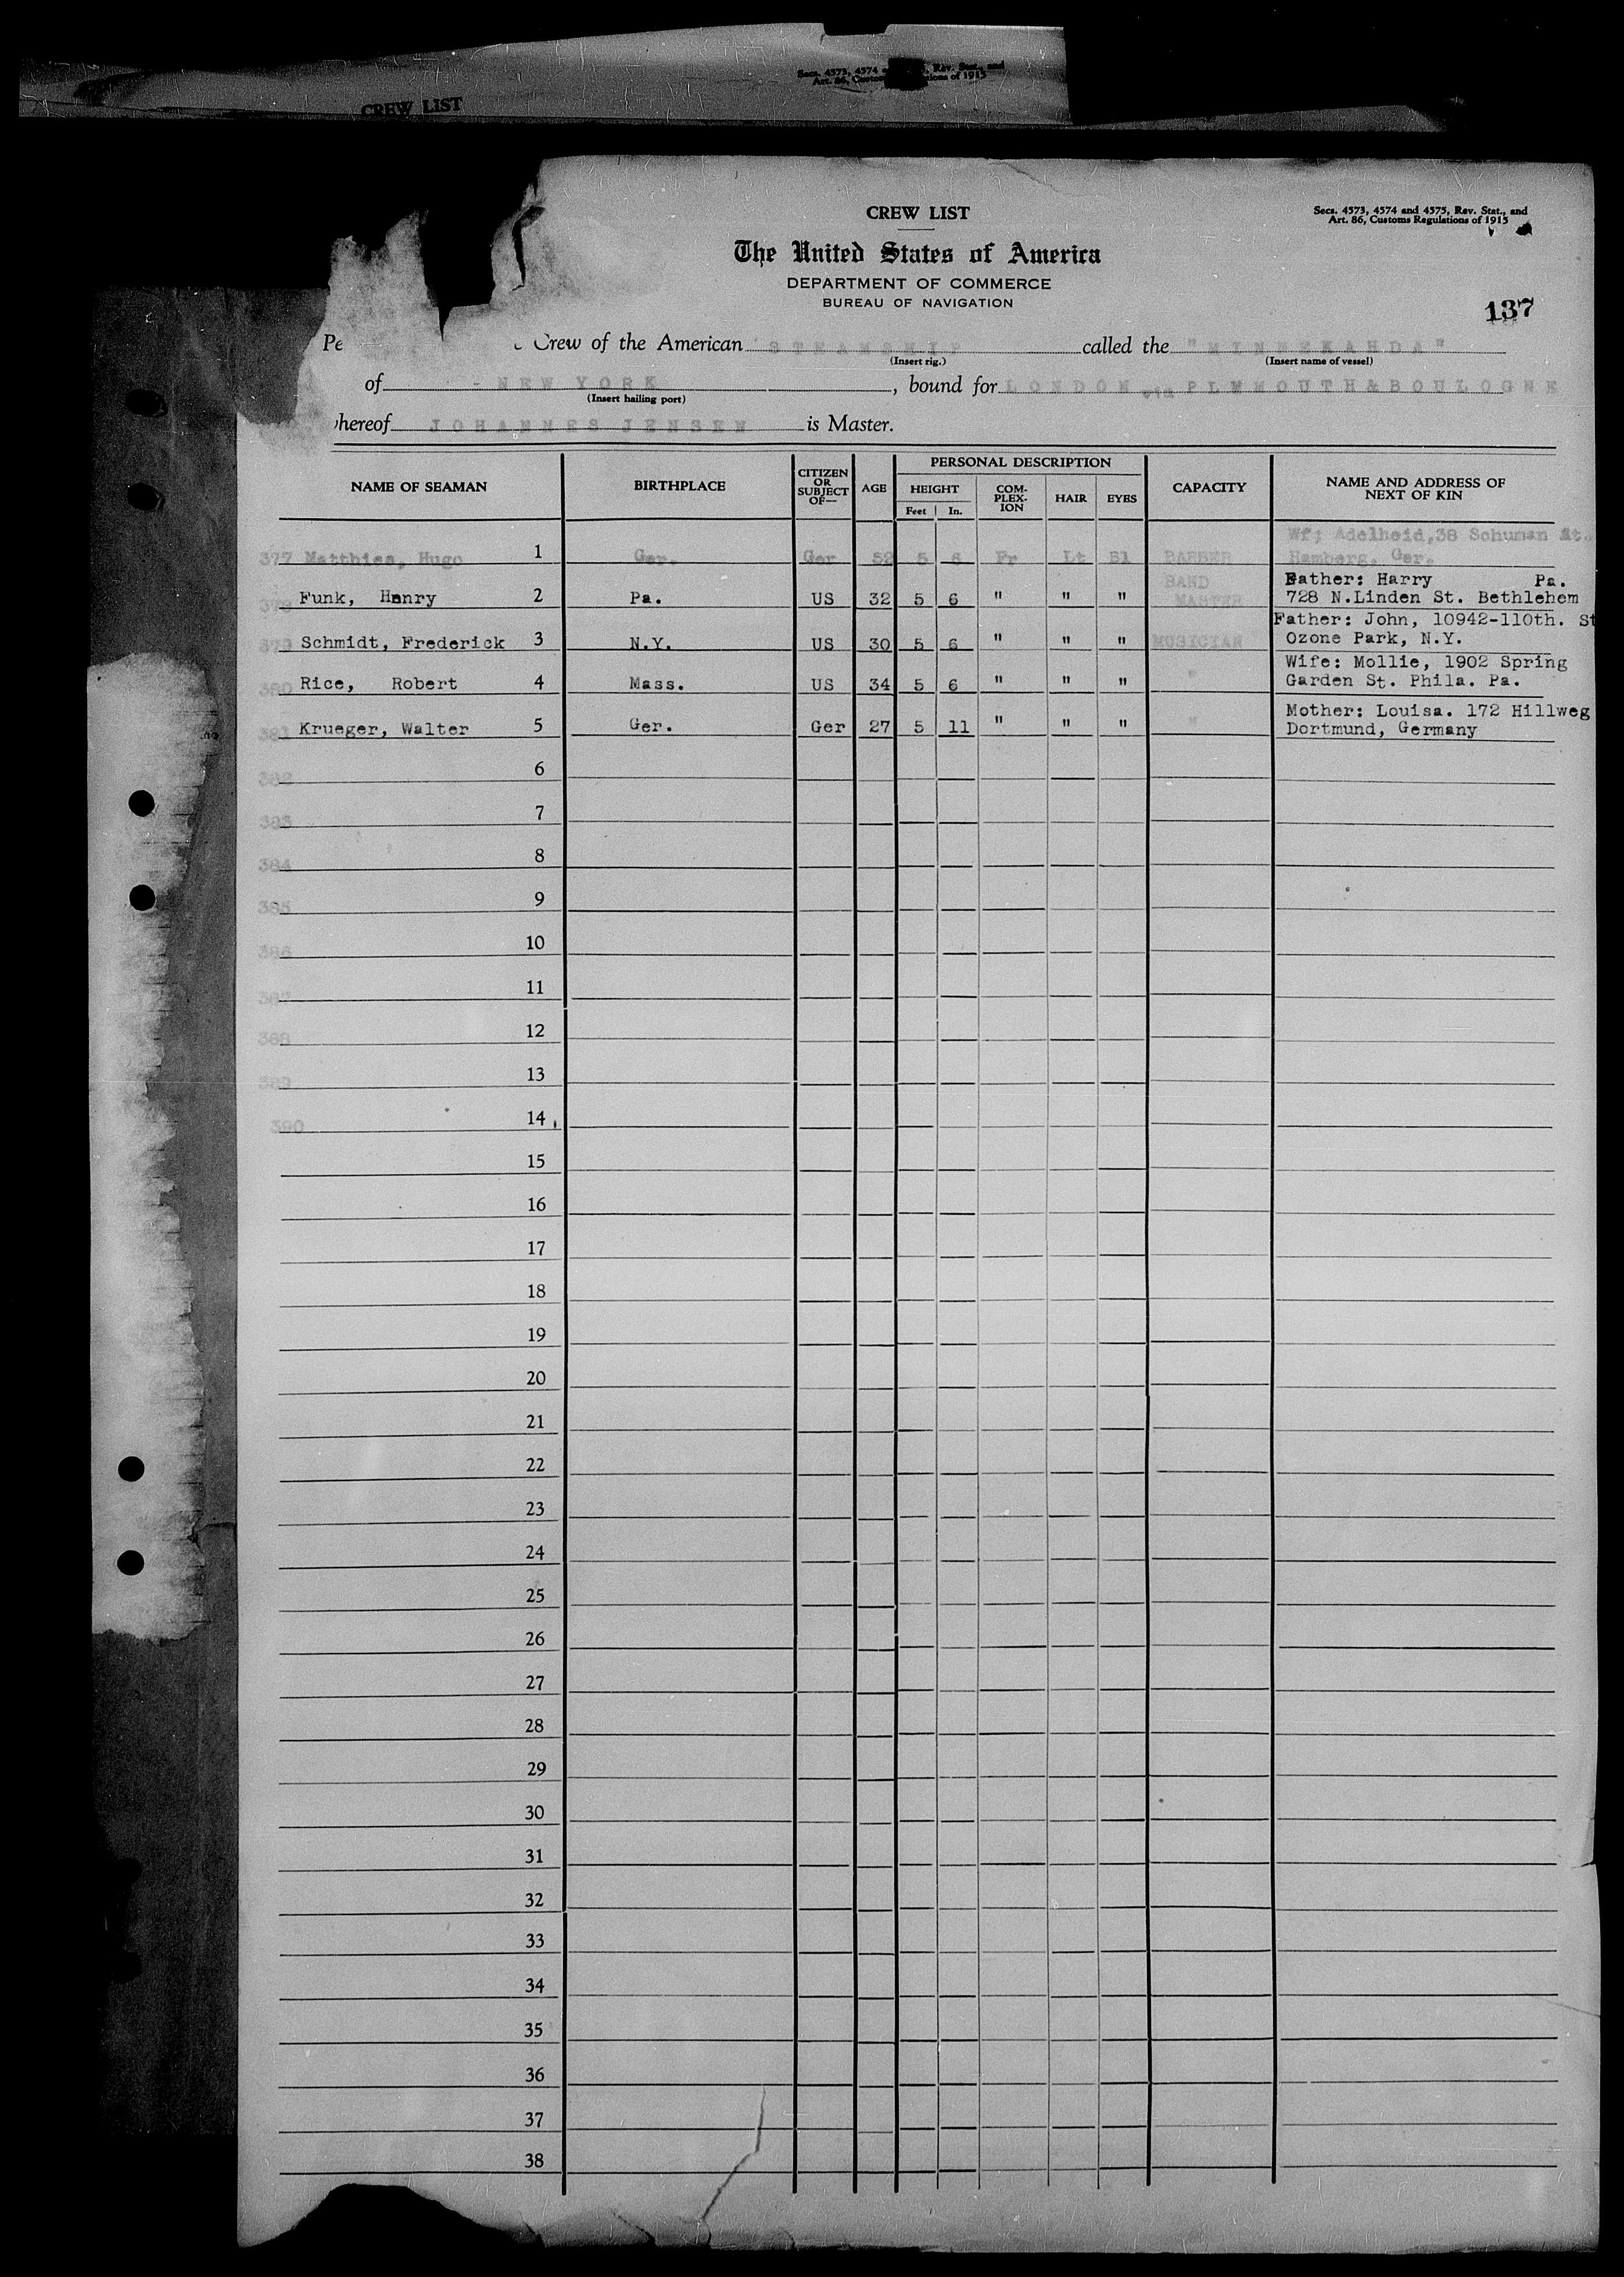 CREW LIST
Secs. 4573, 4574 Rev. Stat., and
Art. 86, Customs Regulations of 1915
CREW LIST
Secs. 4573, 4574 and 4575, Rev. Stat., and
Art. 86, Customs Regulations of 1915
The United States of America
DEPARTMENT OF COMMERCE
BUREAU OF NAVIGATION
137
Crew of the American STEAMSHIP called the "MINNEKAHDA"
(Insert rig.) (Insert name of vessel)
of - NEW YORK , bound for LONDON via PLYMOUTH & BOULOGNE
(Insert hailing port)
hereof JOHANNES JENSEN is Master.
NAME OF SEAMAN BIRTHPLACE CITIZEN OR SUBJECT OF— AGE PERSONAL DESCRIPTION CAPACITY NAME AND ADDRESS OF NEXT OF KIN
HEIGHT COM-PLEX-ION HAIR EYES
Feet In.
Wf; Adelheid, 38 Schuman St.
377 Matthies, Hugo 1 Ger. Ger 52 5 6 Fr Lt Bl BARBER Hamberg, Ger.
BAND Father: Harry Pa.
378 Funk, Henry 2 Pa. US 32 5 6 " " " MASTER 728 N.Linden St. Bethlehem
Father: John, 10942-110th. St
379 Schmidt, Frederick 3 N.Y. US 30 5 6 " " " MUSICIAN Ozone Park, N.Y.
Wife: Mollie, 1902 Spring
380 Rice, Robert 4 Mass. US 34 5 6 " " " " Garden St. Phila. Pa.
Mother: Louisa. 172 Hillweg
381 Krueger, Walter 5 Ger. Ger 27 5 11 " " " " Dortmund, Germany
382 6
383 7
384 8
385 9
386 10
387 11
388 12
389 13
390 14
15
16
17
18
19
20
21
22
23
24
25
26
27
28
29
30
31
32
33
34
35
36
37
38